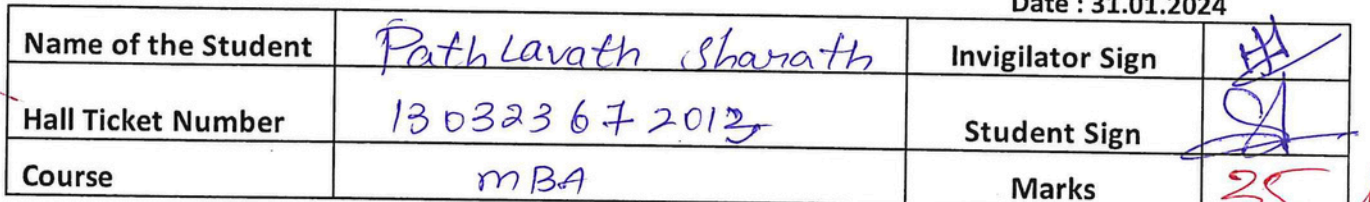 Date : 31.01.2024
Name of the Student Pathlavath Sharath Invigilator Sign
Hall Ticket Number 130323672012 Student Sign
Course MBA Marks 25